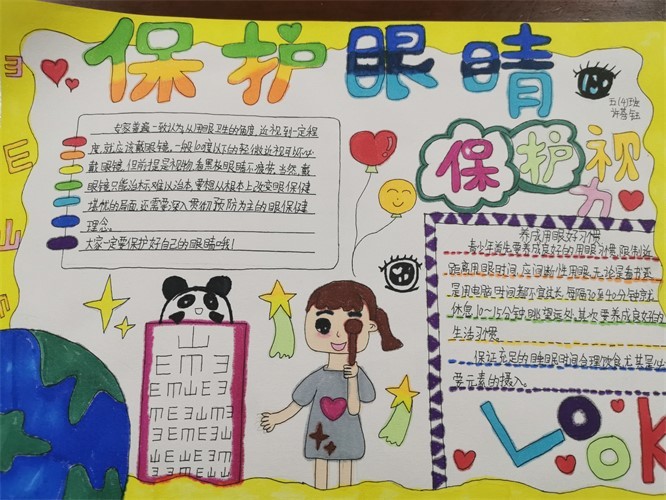 保护眼睛
五(4)班
专家普遍一致认为从用眼卫生的角度,近视到一定程
度,就应该戴眼镜,一般100度以下的轻微近视可以不必
戴眼镜,但前提是视物,看黑板眼睛不疲劳。当然,戴
眼镜只能治标,难以治本,要想从根本上改变眼保健
堪忧的局面,还需要深入贯彻预防为主的眼保健
理念。
大家一定要保护好自己的眼睛哦!
保护视力
养成用眼好习惯
青少年首先要养成良好的用眼习惯,限制近
距离用眼时间,应间断性用眼,无论是看书还
是用电脑,时间都不宜过长,每隔30至40分钟就
休息10~15分钟,眺望远处,其次要养成良好的
生活习惯。
保证充足的睡眠时间,合理饮食,尤其是
要元素的摄入。
LOOK
山
E m 3
E m 山 E 3